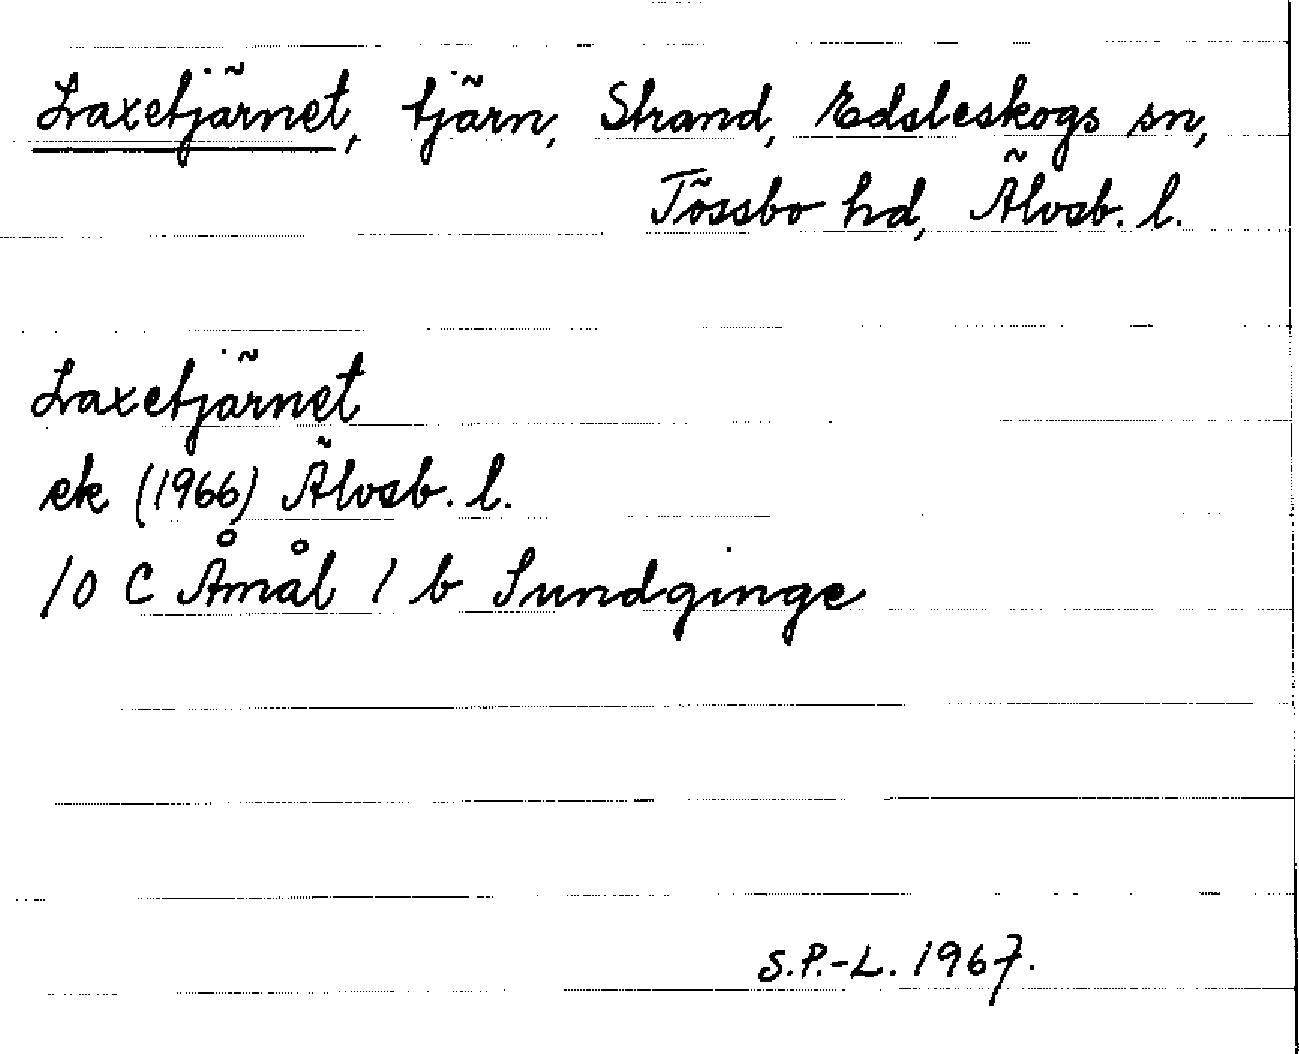 Laxetjärnet, tjärn, Strand, Edsleskogs sn,
Tössbo hd, Älvsb. l.
Laxetjärnet
ek (1966) Älvsb. l.
10 C Åmål 1 b Sundginge
S.P.-L. 1967.